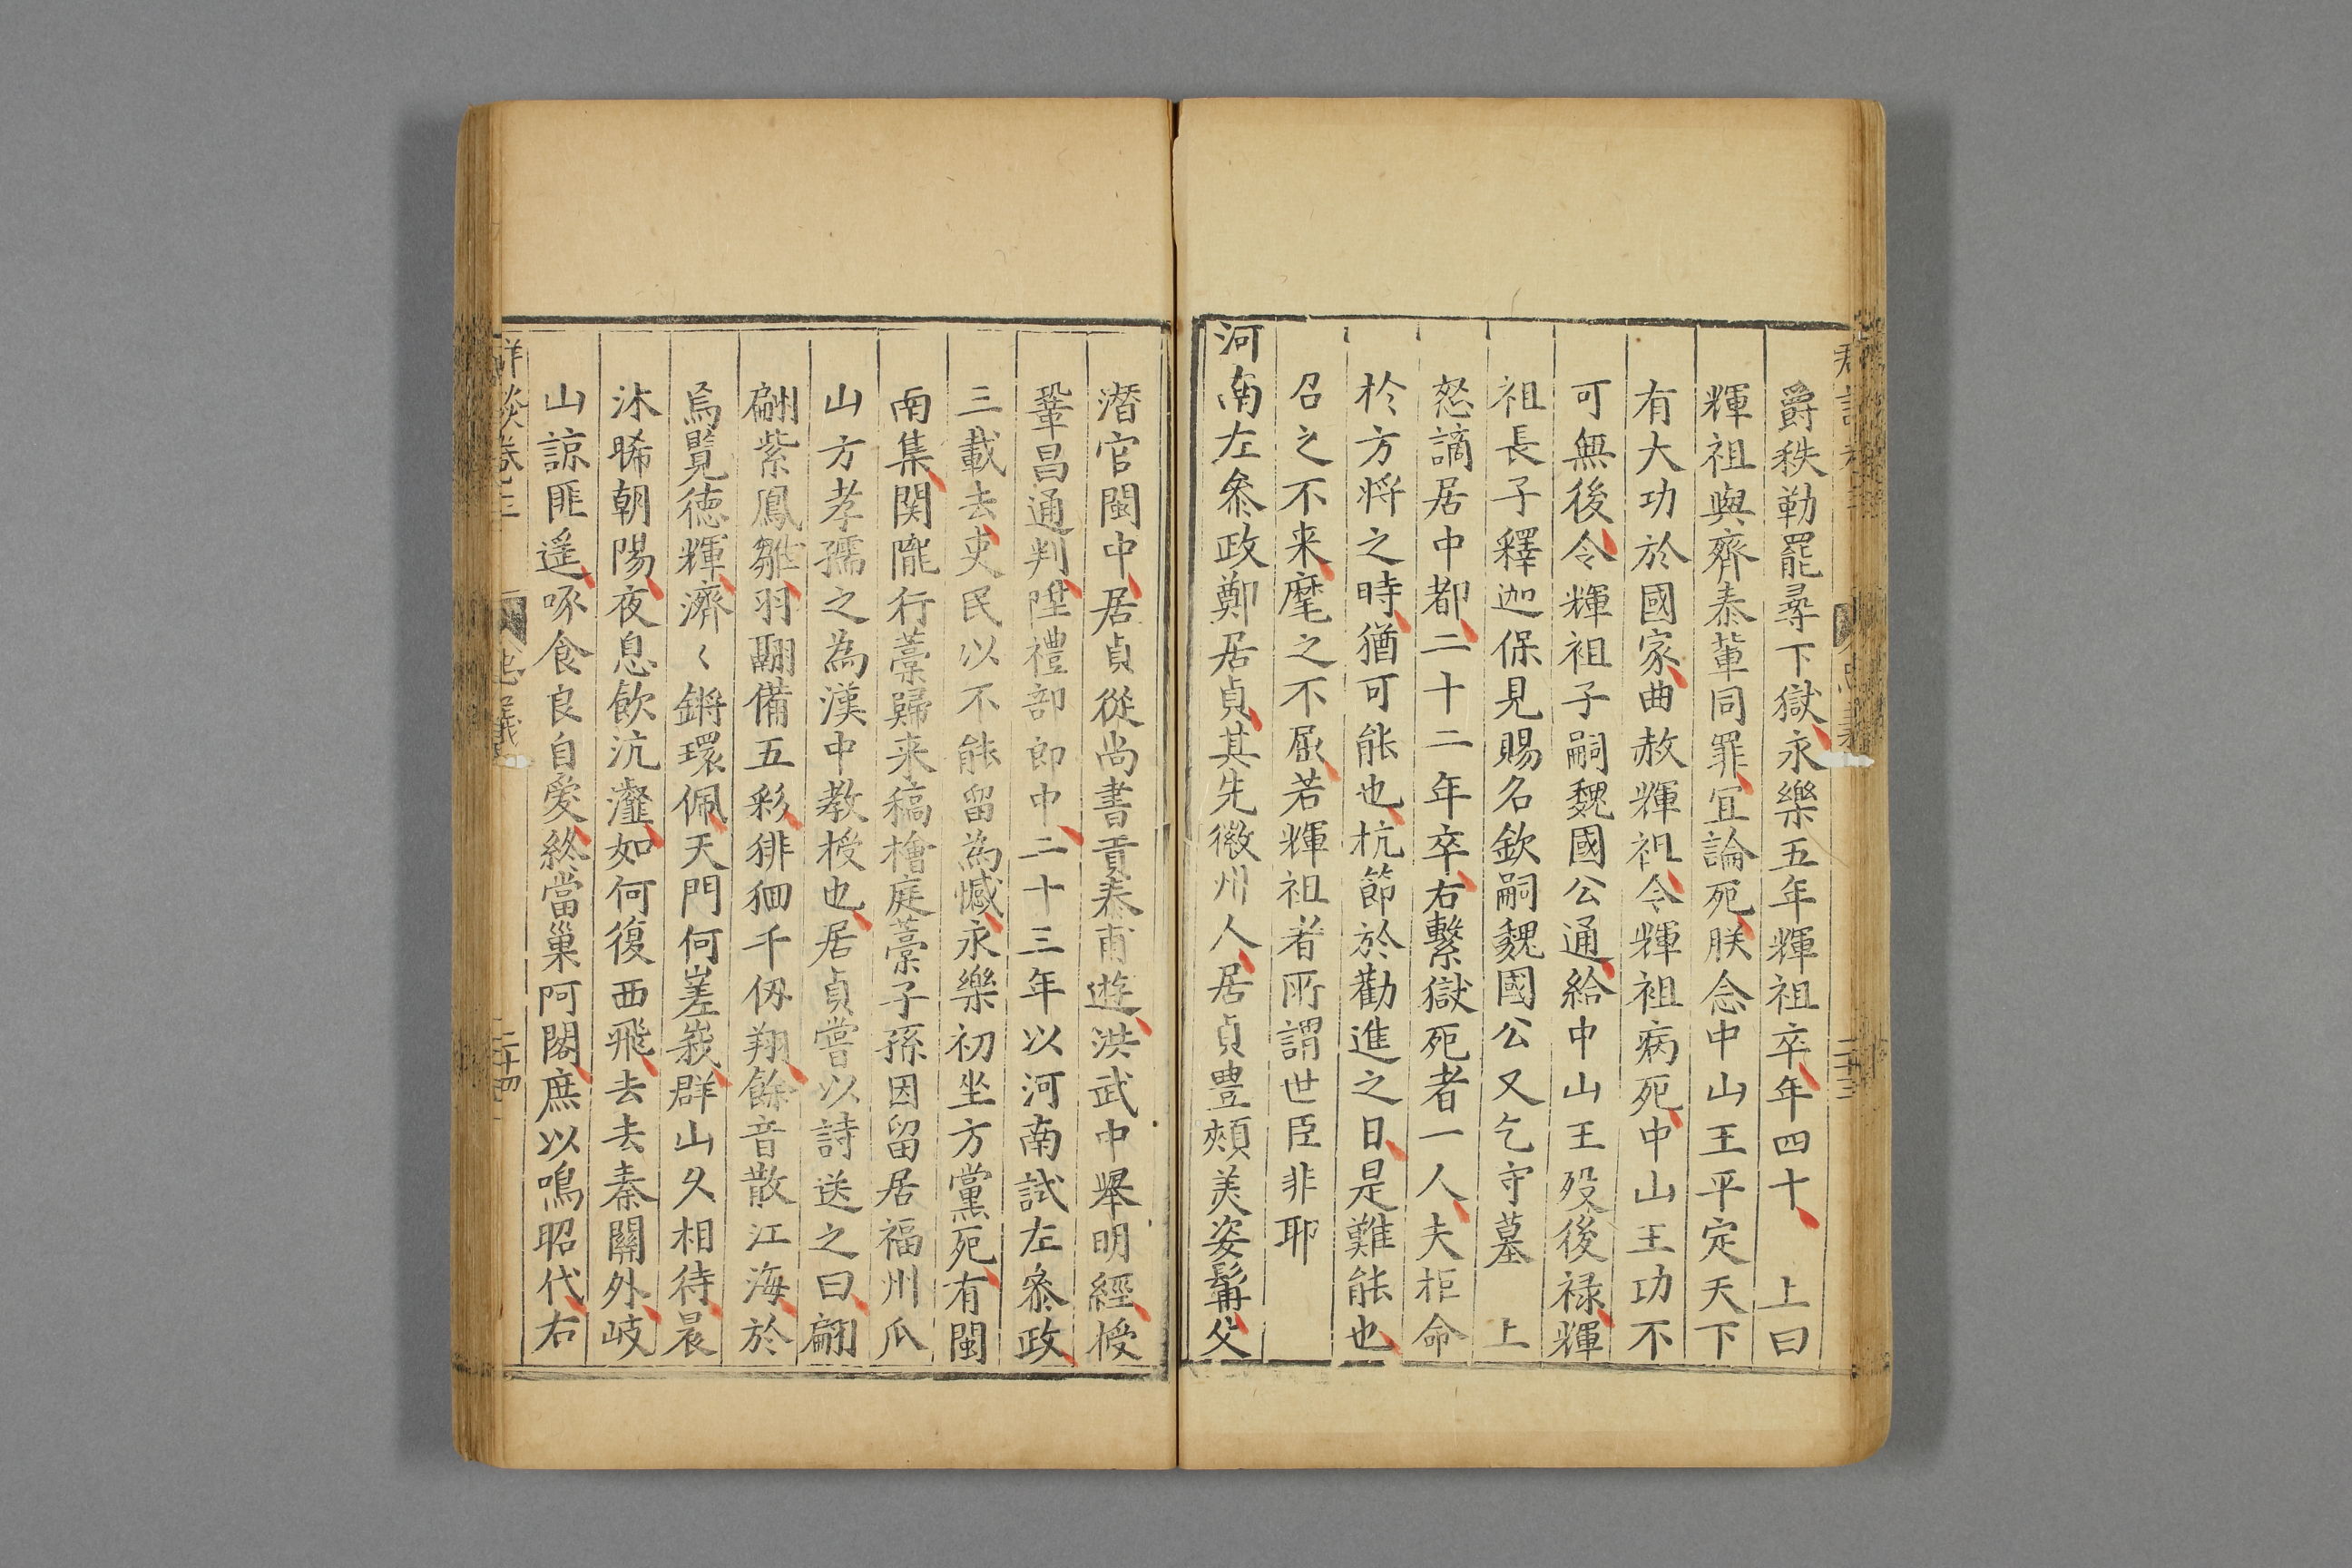 爵秩勒罷尋下獄永樂五年輝祖卒年四十　上曰
輝祖與齊泰輩同罪宜論死朕念中山王平定天下
有大功於國家曲赦輝祖令輝祖病死中山王功不
可無後令輝祖子嗣魏國公通給中山王歿後祿輝
祖長子釋迦保見賜名欽嗣魏國公又乞守墓　上
怒謫居中都二十二年卒右繫獄死者一人夫柜命
於方將之時猶可能也杭節於勸進之日是難能也
召之不来麾之不厭若輝祖者所謂世臣非耶
河南左叅政鄭居貞其先徽州人居貞豊頰美姿髯父
潛官閩中居貞從尚書貢泰甫遊洪武中舉明經授
鞏昌通判陞禮部郎中二十三年以河南試左叅政
三載去吏民以不能留為憾永樂初坐方黨死有閩
南集関隴行藁歸来稿檜庭藁子孫因留居福州爪
山方孝孺之為漢中教授也居貞嘗以詩送之曰翩
翩紫鳳雛羽翮備五彩徘徊千仞翔餘音散江海於
焉覽徳輝濟〻鏘環佩天門何嵳峩群山久相待晨
沐晞朝陽夜息飲沆瀣如何復西飛去去秦關外岐
山諒匪遥啄食良自愛終當巢阿閣庶以鳴昭代右
卷之三
忠義
二十四